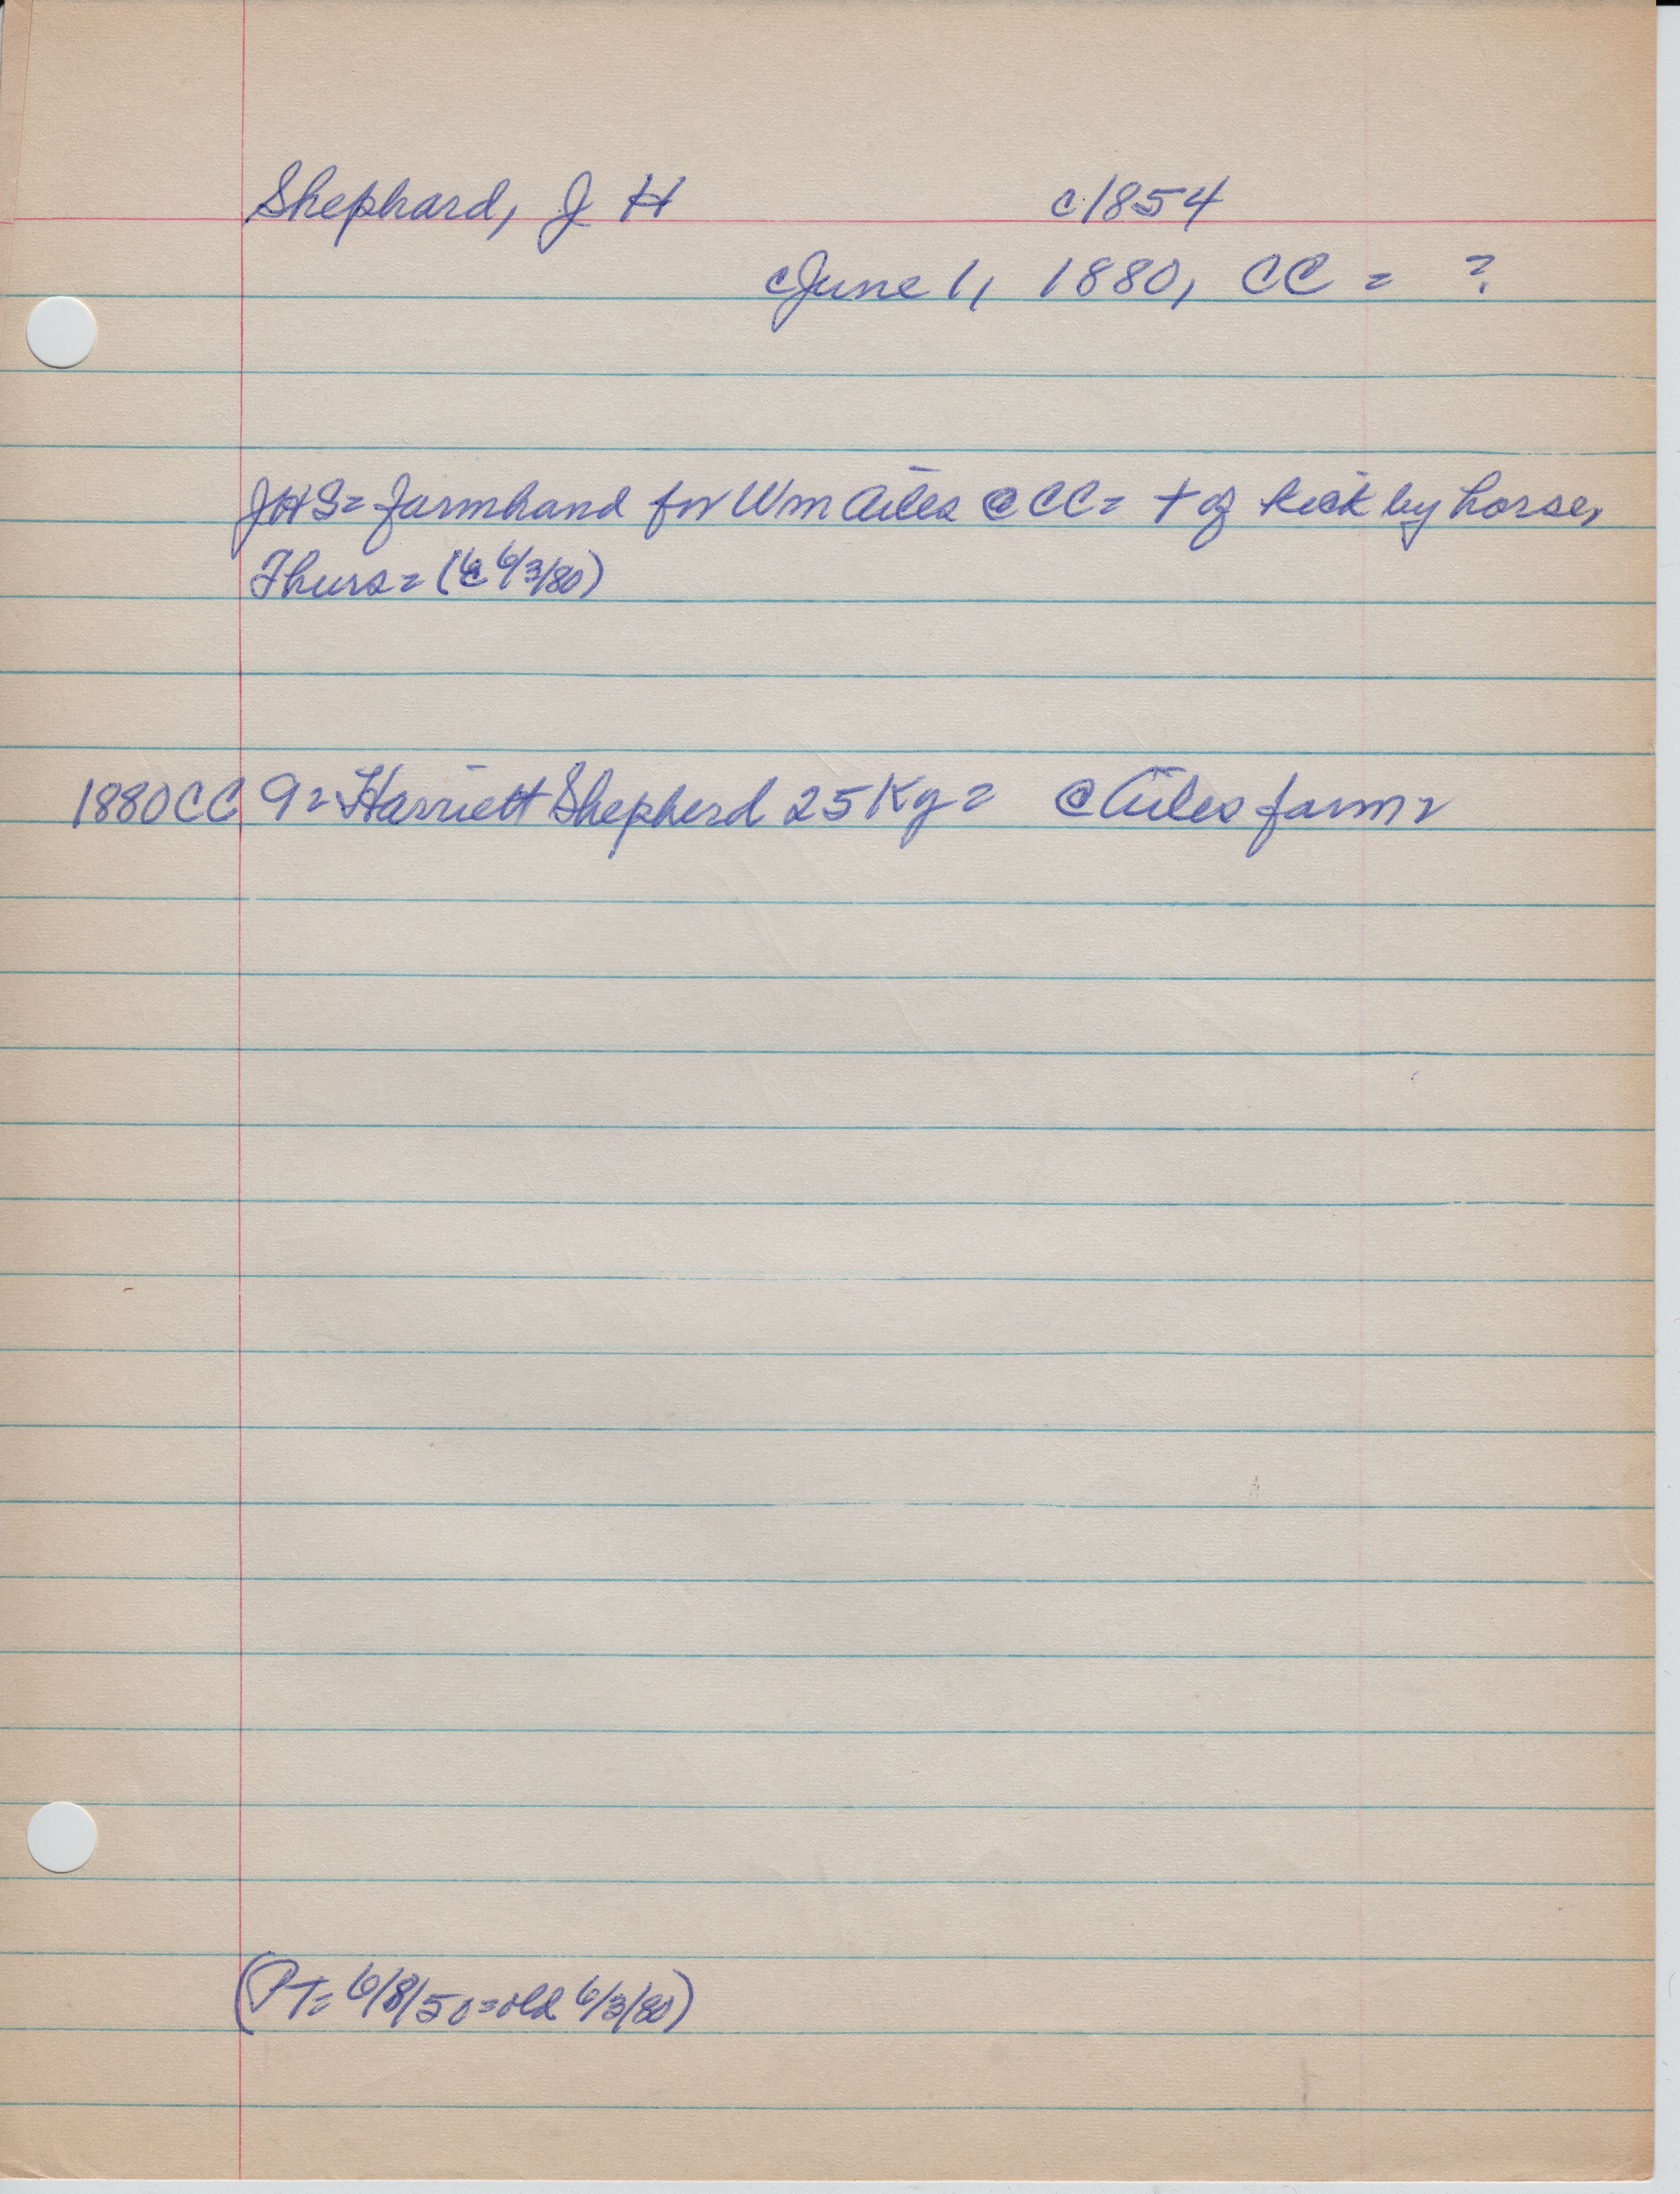 Shephard, J H c1854
cJune 1, 1880, CC = ?
JHS= farmhand for Wm Ailes @ CC= + of kick by horse,
Thurs= ( 6/3/80)
1880CC 9= Harriett Shepherd 25 Ky= @ Ailes farm=
(PT= 6/8/50=old 6/3/80)